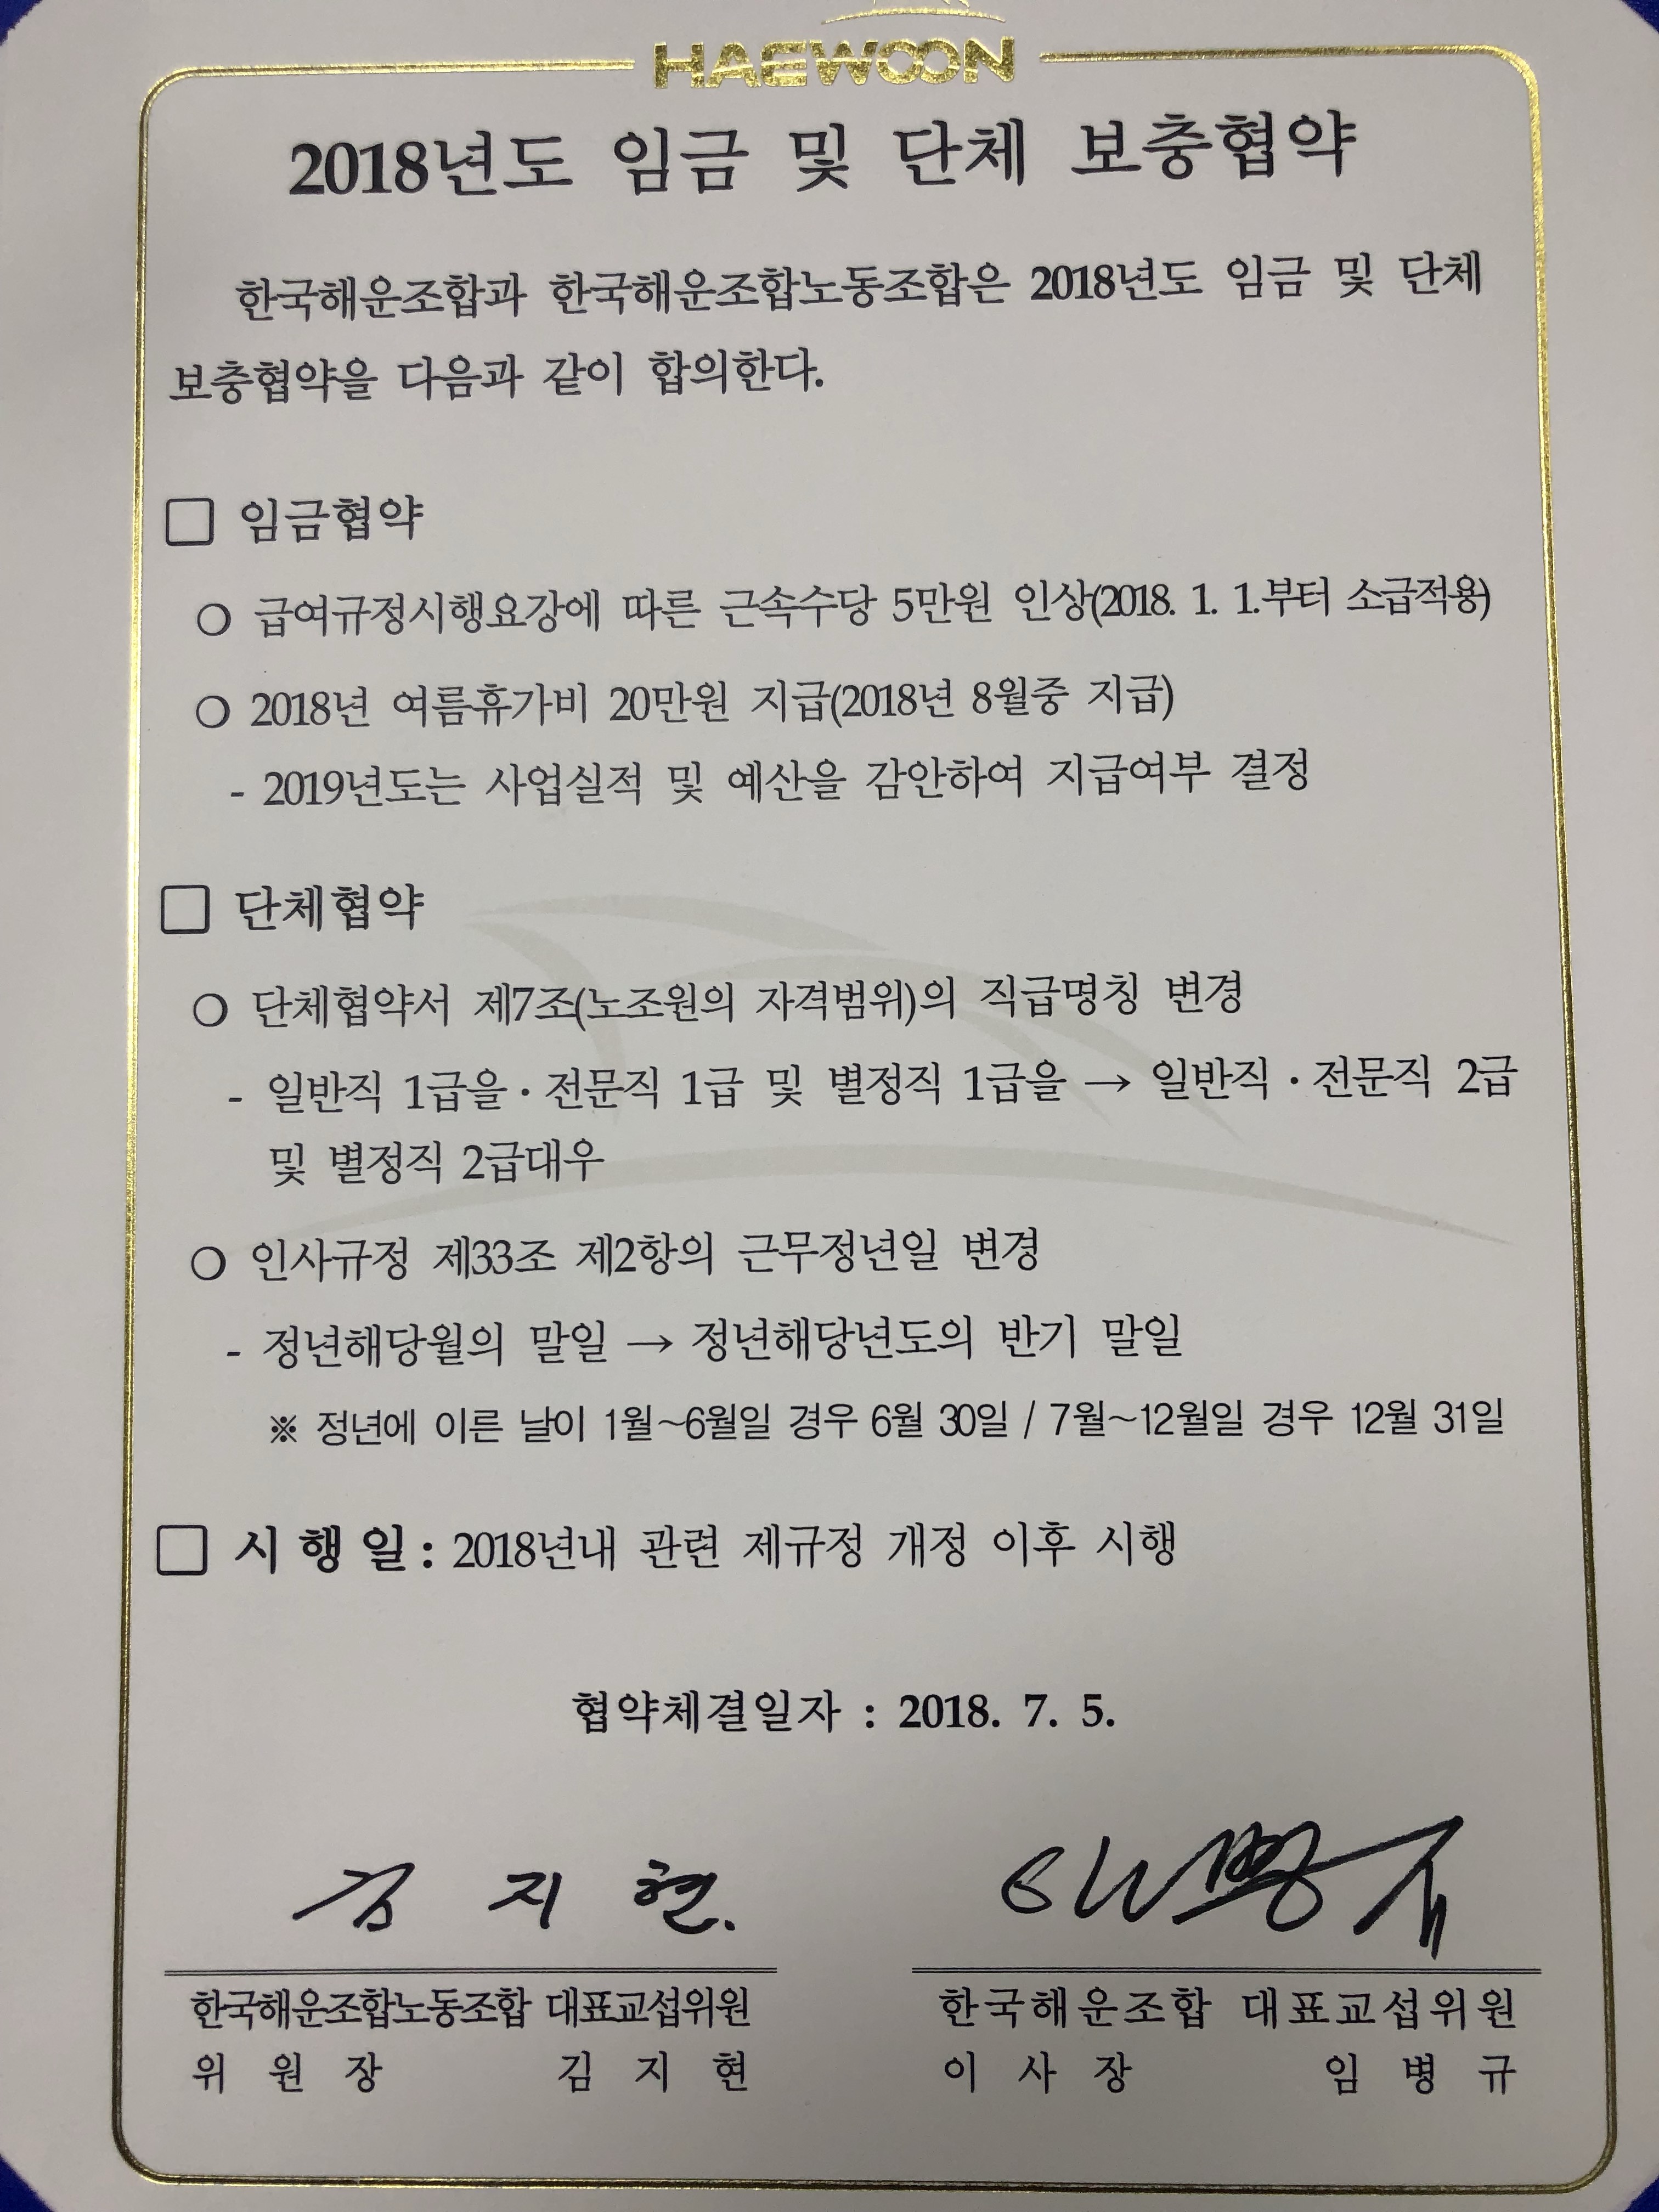 HAEWOON
2018년도 임금 및 단체 보충협약
한국해운조합과 한국해운조합노동조합은 2018년도 임금 및 단체
보충협약을 다음과 같이 합의한다.
□ 임금협약
○ 급여규정시행요강에 따른 근속수당 5만원 인상(2018. 1. 1.부터 소급적용)
○ 2018년 여름휴가비 20만원 지급(2018년 8월중 지급)
- 2019년도는 사업실적 및 예산을 감안하여 지급여부 결정
□ 단체협약
○ 단체협약서 제7조(노조원의 자격범위)의 직급명칭 변경
- 일반직 1급을·전문직 1급 및 별정직 1급을 → 일반직·전문직 2급
및 별정직 2급대우
○ 인사규정 제33조 제2항의 근무정년일 변경
- 정년해당월의 말일 → 정년해당년도의 반기 말일
※ 정년에 이른 날이 1월~6월일 경우 6월 30일 / 7월~12월일 경우 12월 31일
□ 시 행 일 : 2018년내 관련 제규정 개정 이후 시행
협약체결일자 : 2018. 7. 5.
김 지 현.
임병규
한국해운조합노동조합 대표교섭위원
한국해운조합 대표교섭위원
위 원 장 김 지 현
이 사 장 임 병 규